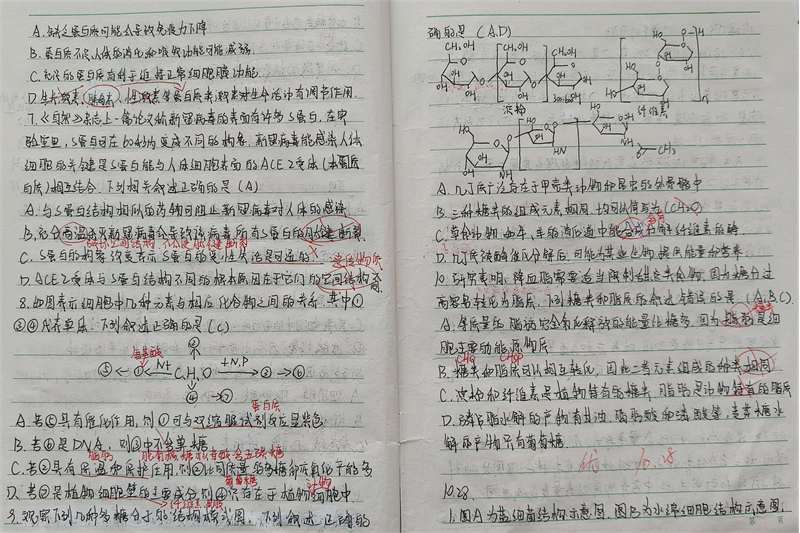 A. 缺乏蛋白质可能会导致免疫力下降
B. 蛋白质不足,人体的消化和吸收功能可能减弱.
C. 充足的蛋白质有利于维持正常细胞膜功能
D. 生长激素、胰岛素、性激素等蛋白质类激素对生命活动有调节作用.
7.《自然》杂志上一篇论文称新冠病毒的表面有许多S蛋白,在实
验室里,S蛋白可在变成不同的构象.新冠病毒能感染人体
细胞的关键是S蛋白能与人体细胞表面的ACE2受体(本质为蛋
白质)相互结合.下列相关叙述正确的是(A)
A. 与S蛋白结构相似的药物可阻止新冠病毒对人体的感染
B. 充分高温杀灭新冠病毒会导致该病毒所有S蛋白的肽键断裂
破坏空间结构,不会使肽键断裂
C. S蛋白的构象改变表示S蛋白的变性
D. ACE2受体与S蛋白结构不同的根本原因在于它们的空间结构
8.如图表示细胞中几种元素与相应化合物之间的关系.其中①
③④代表单体.下列叙述正确的是(C)
②
氨基酸
⑤ ① +N C、H、O +N、P ③ ⑥
④ ⑦
蛋白质
A. 若⑤具有催化作用,则①可与双缩脲试剂反应显紫色
B. 若⑥是DNA,则③中不含单糖
脂肪
C. 若②具有保温和保护作用,则②比同质量的多糖彻底氧化产能多
葡萄糖
D. 若⑦是植物细胞壁的主要成分,则④只存在于植物细胞中
9.观察下列几种多糖分子的结构模式图,下列叙述正确的
确的是(A.D)
CH₂OH CH₂OH CH₂OH
淀粉 纤维素
HN CH₃
A. 几丁质广泛存在于甲壳类动物和昆虫的外骨骼中
B. 三种糖类的组成元素相同,均可以缩写为(CH₂O)
C. 草食动物,如牛、羊的消化道中能合成分解纤维素的酶
D. 几丁质被酶催化分解后,可能为某些生物提供能量和营养
10.研究表明,降血脂需要适当限制糖类食物,因为糖分过
高容易转化为脂肪.下列糖类和脂质的叙述错误的是(A.B.C)
糖类
A. 等质量的脂肪完全氧化释放的能量比糖多,因为脂肪是细
胞主要的能源物质
B. 糖类和脂质可以相互转化,因此二者元素组成的种类相同
C. 淀粉和纤维素是植物特有的糖类,脂肪是动物特有的脂质
D. 磷脂水解的产物有甘油、脂肪酸和磷酸等,麦芽糖水
解的产物只有葡萄糖
优 10.28
10.28.
1.图A为蓝细菌结构示意图,图B为水绵细胞结构示意图.
第 页